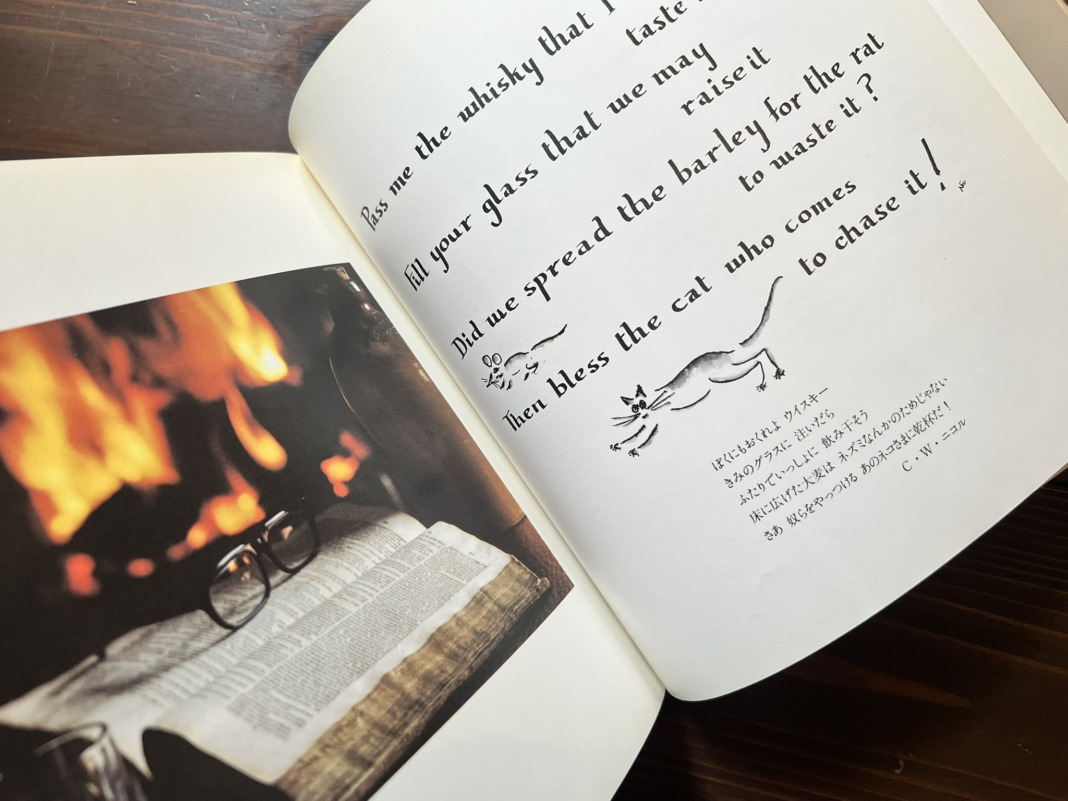 Pass me the whisky that I
taste
Fill your glass that we may
raise it
Did we spread the barley for the rat
to waste it ?
Then bless the cat who comes
to chase it !
ぼくにもおくれよ ウイスキー
きみのグラスに 注いだら
ふたりでいっしょに 飲み干そう
床に広げた大麦は ネズミなんかのためじゃない
さあ 奴らをやっつける あのネコさまに乾杯だ!
C・W・ニコル